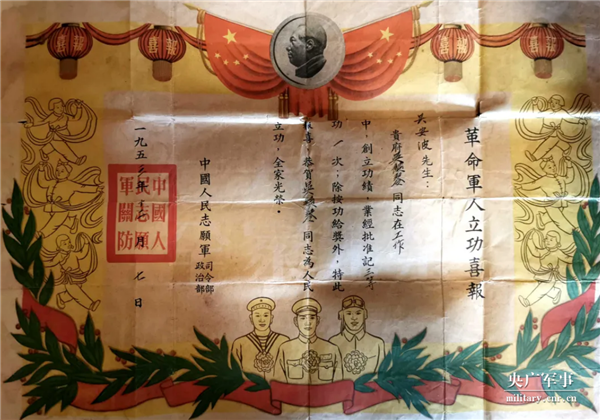 喜
報
喜
報
革命軍人立功喜報
吴安波先生：
貴府吴 同志在工作
中，創立功績，業經批准記三等
功一次；除按功給獎外，特此
報導。恭賀吴 同志為人民
立功，全家光榮。
中國人民志願軍 司令部 政治部
一九五 年十 月七日
中國人民志願軍關防
央广军事
military.cnr.cn